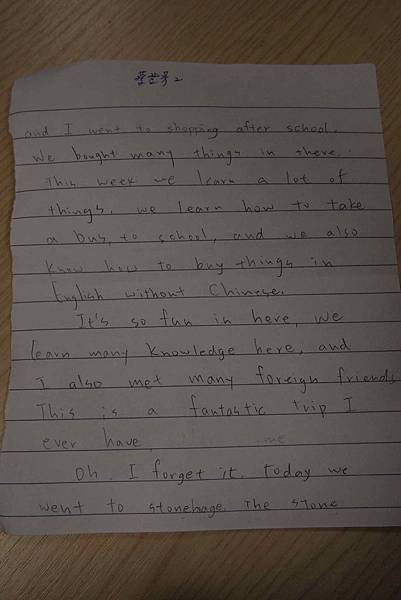 2
and I went to shopping after school.
We bought many things in there.
This week we learn a lot of
things, we learn how to take
a bus, to school, and we also
know how to buy things in
English without Chinese.
It's so fun in here, we
learn many knowledge here, and
I also met many foreign friends
This is a fantastic trip I
ever have
me
Oh. I forget it. Today we
went to stonehage. The stone